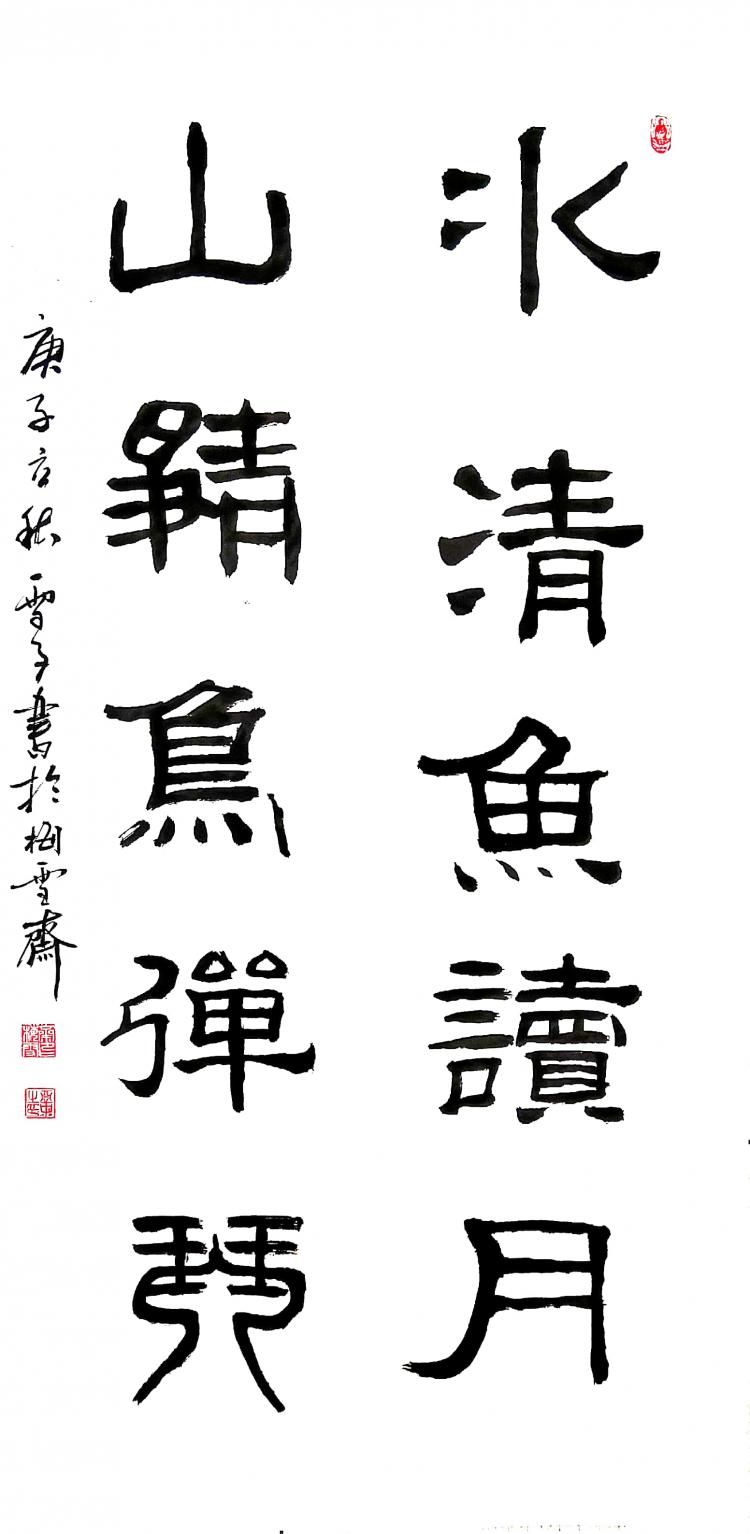 水清魚讀月
山靜鳥彈琴
庚子立秋雪子書於梅雪齋